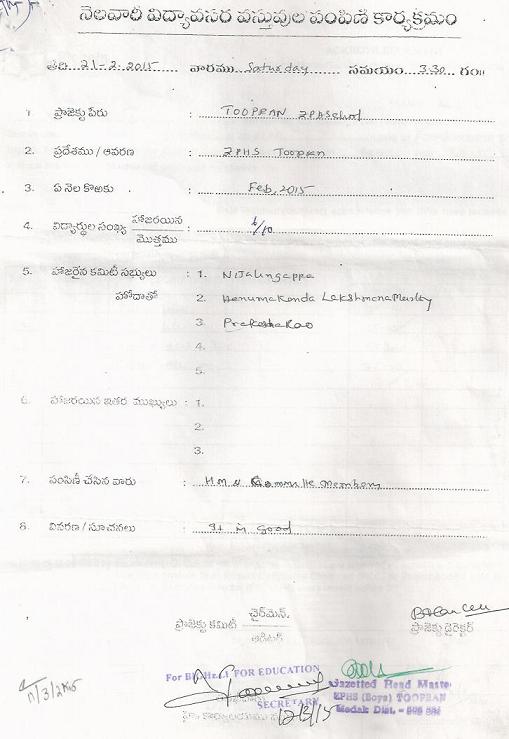 నెలవారి విద్యావసర వస్తువుల పంపిణి కార్యక్రమం
తేది 21-2-2015 వారము Saturday సమయం 3.30 గం॥
1 ప్రాజెక్టు పేరు : TOOPRAN ZPHSchool
2. ప్రదేశము / ఆవరణ : ZPHS Toopran
3. ఏ నెల కొఱకు : Feb, 2015
4. విద్యార్థుల సంఖ్య హాజరయిన / మొత్తము : /10
5. హాజరైన కమిటీ సభ్యులు : 1. Nijalingappa
హోదాతో 2. Hanumakonda Lakshmana
3. PrakashaRao
4.
5.
6. హాజరయిన ఇతర ముఖ్యులు : 1.
2.
3.
7. పంపిణీ చేసిన వారు : HM & Committe Members
8. వివరణ / సూచనలు : It is Good
ప్రాజెక్టు కమిటీ ఛైర్మెన్. / ఆడిటర్
ప్రాజెక్టు డైరెక్టర్
For FOR EDUCATION
SECRETARY
12/3/15
Gazetted Head Master
ZPHS (Boys) TOOPRAN
Medak Dist. -